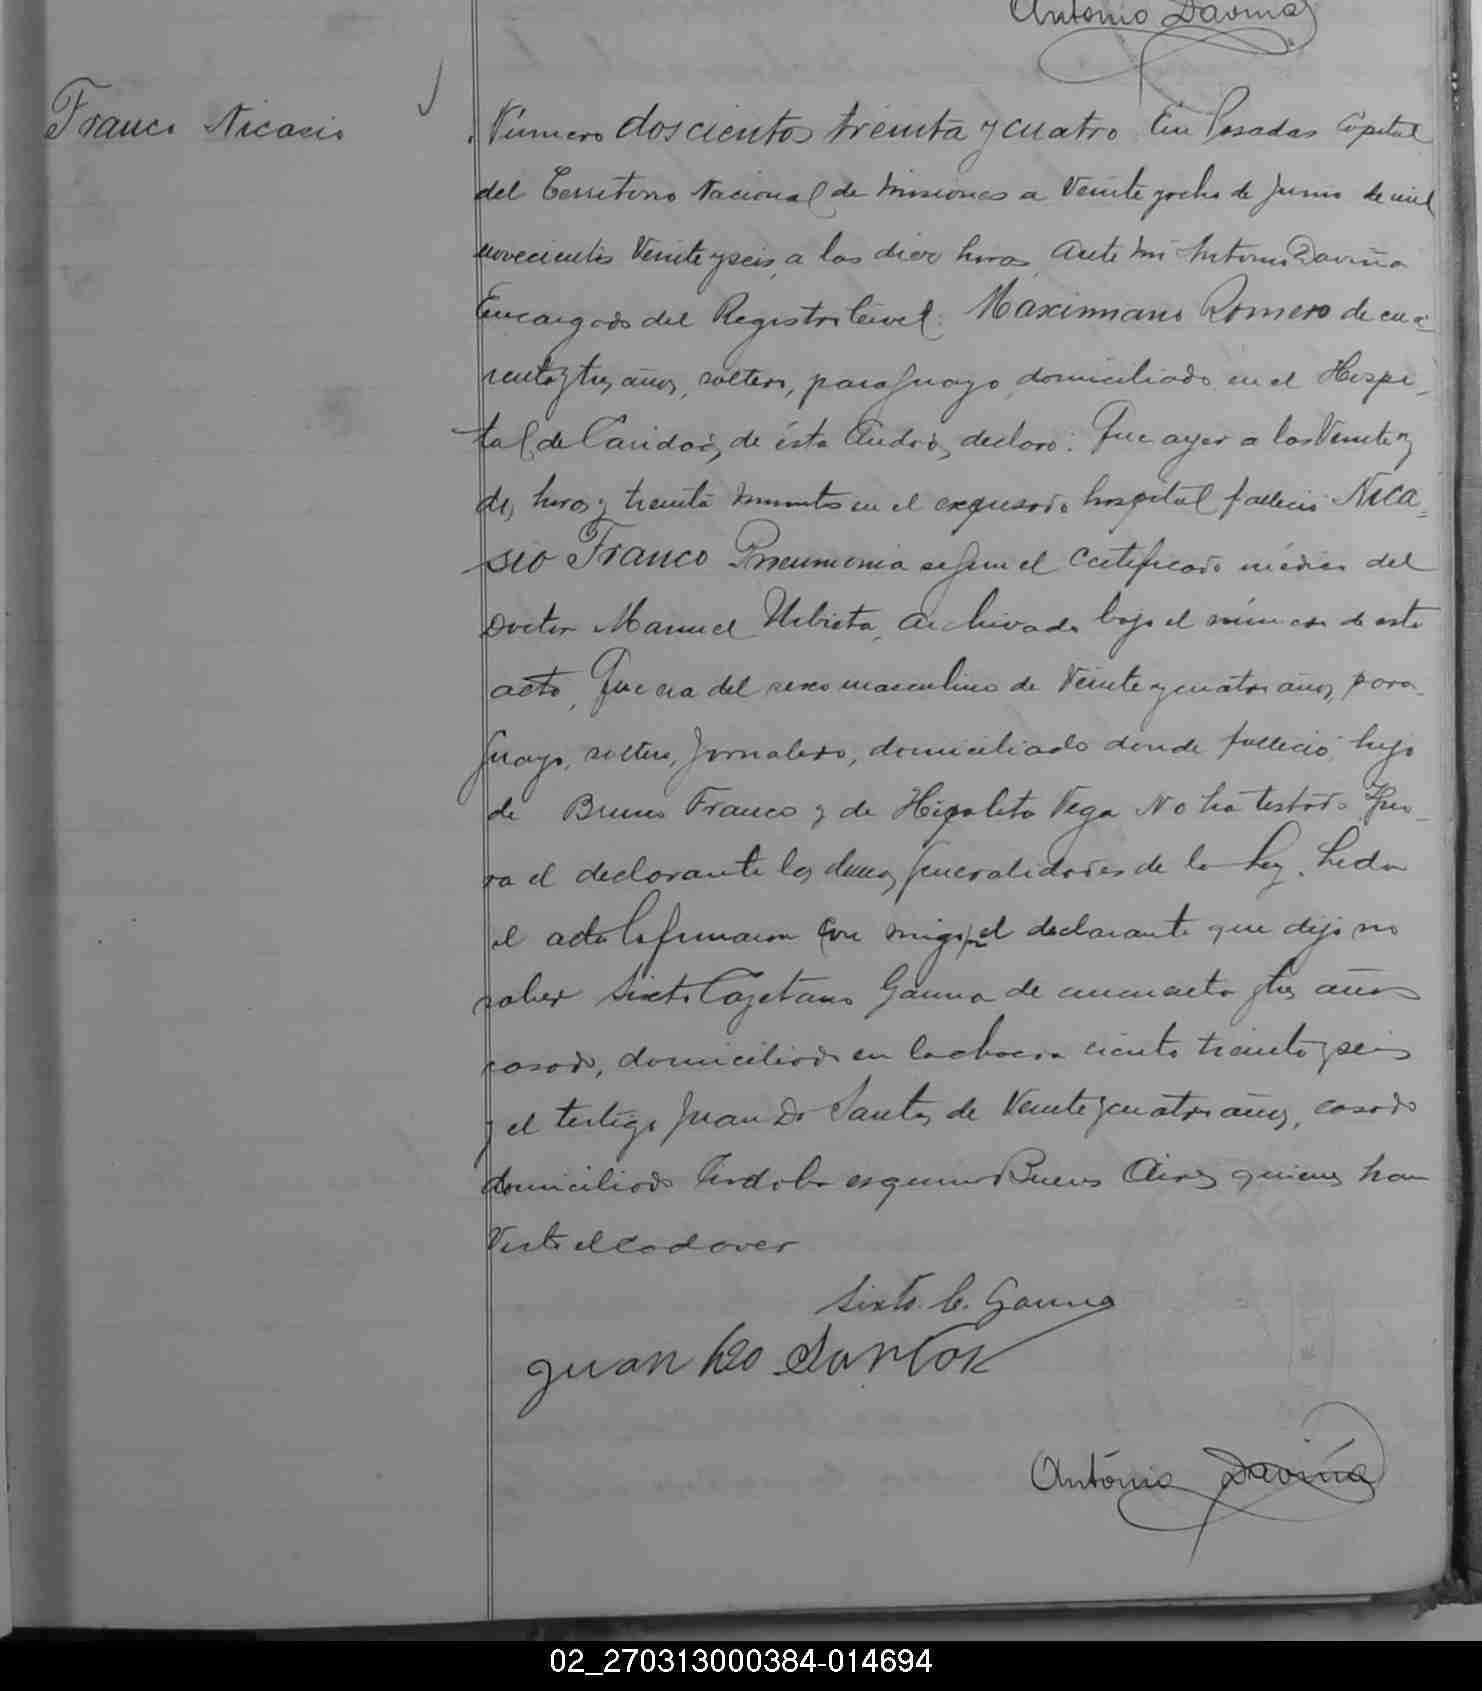 Antonio Daviña
Franco Nicacio
Número doscientos treinta y cuatro En Posadas Capital
del Territorio Nacional de Misiones a Veinte y ocho de Junio de mil
novecientos Veinte y seis, a las diez horas, ante mi Antonio Daviña
Encargado del Registro Civil: Maximiano Romero de cua-
renta y tres años, soltero, paraguayo, domiciliado en el Hospi-
tal de Caridad, de ésta Ciudad, declaró: Que ayer a las Veinte y
dos horas y treinta minutos en el expresado hospital falleció Nica-
sio Franco Pneumonia segun el certificado médico del
Doctor Manuel Urbieta, archivado bajo el número de esta
acta, Que era del sexo masculino de Veinte y cuatro años, para-
guayo, soltero, Jornalero, domiciliado donde falleció, hijo
de Bruno Franco y de Hipolita Vega No ha testado
el declarante las generalidades de la ley. Leida
el acta la firmaron con migo, el declarante que dijo no
saber Sixto Cayetano Gauna de cincuenta y tres años
casado, domiciliado en la chacra ciento treinta y seis
y el testigo Juan Do Santos de Veinte y cuatro años, casado
domiciliado Cordoba esquina Buenos Aires quienes han
Visto el cadaver
Sixto. C. Gauna
Juan Do Santos
Antonio Daviña
02_270313000384-014694